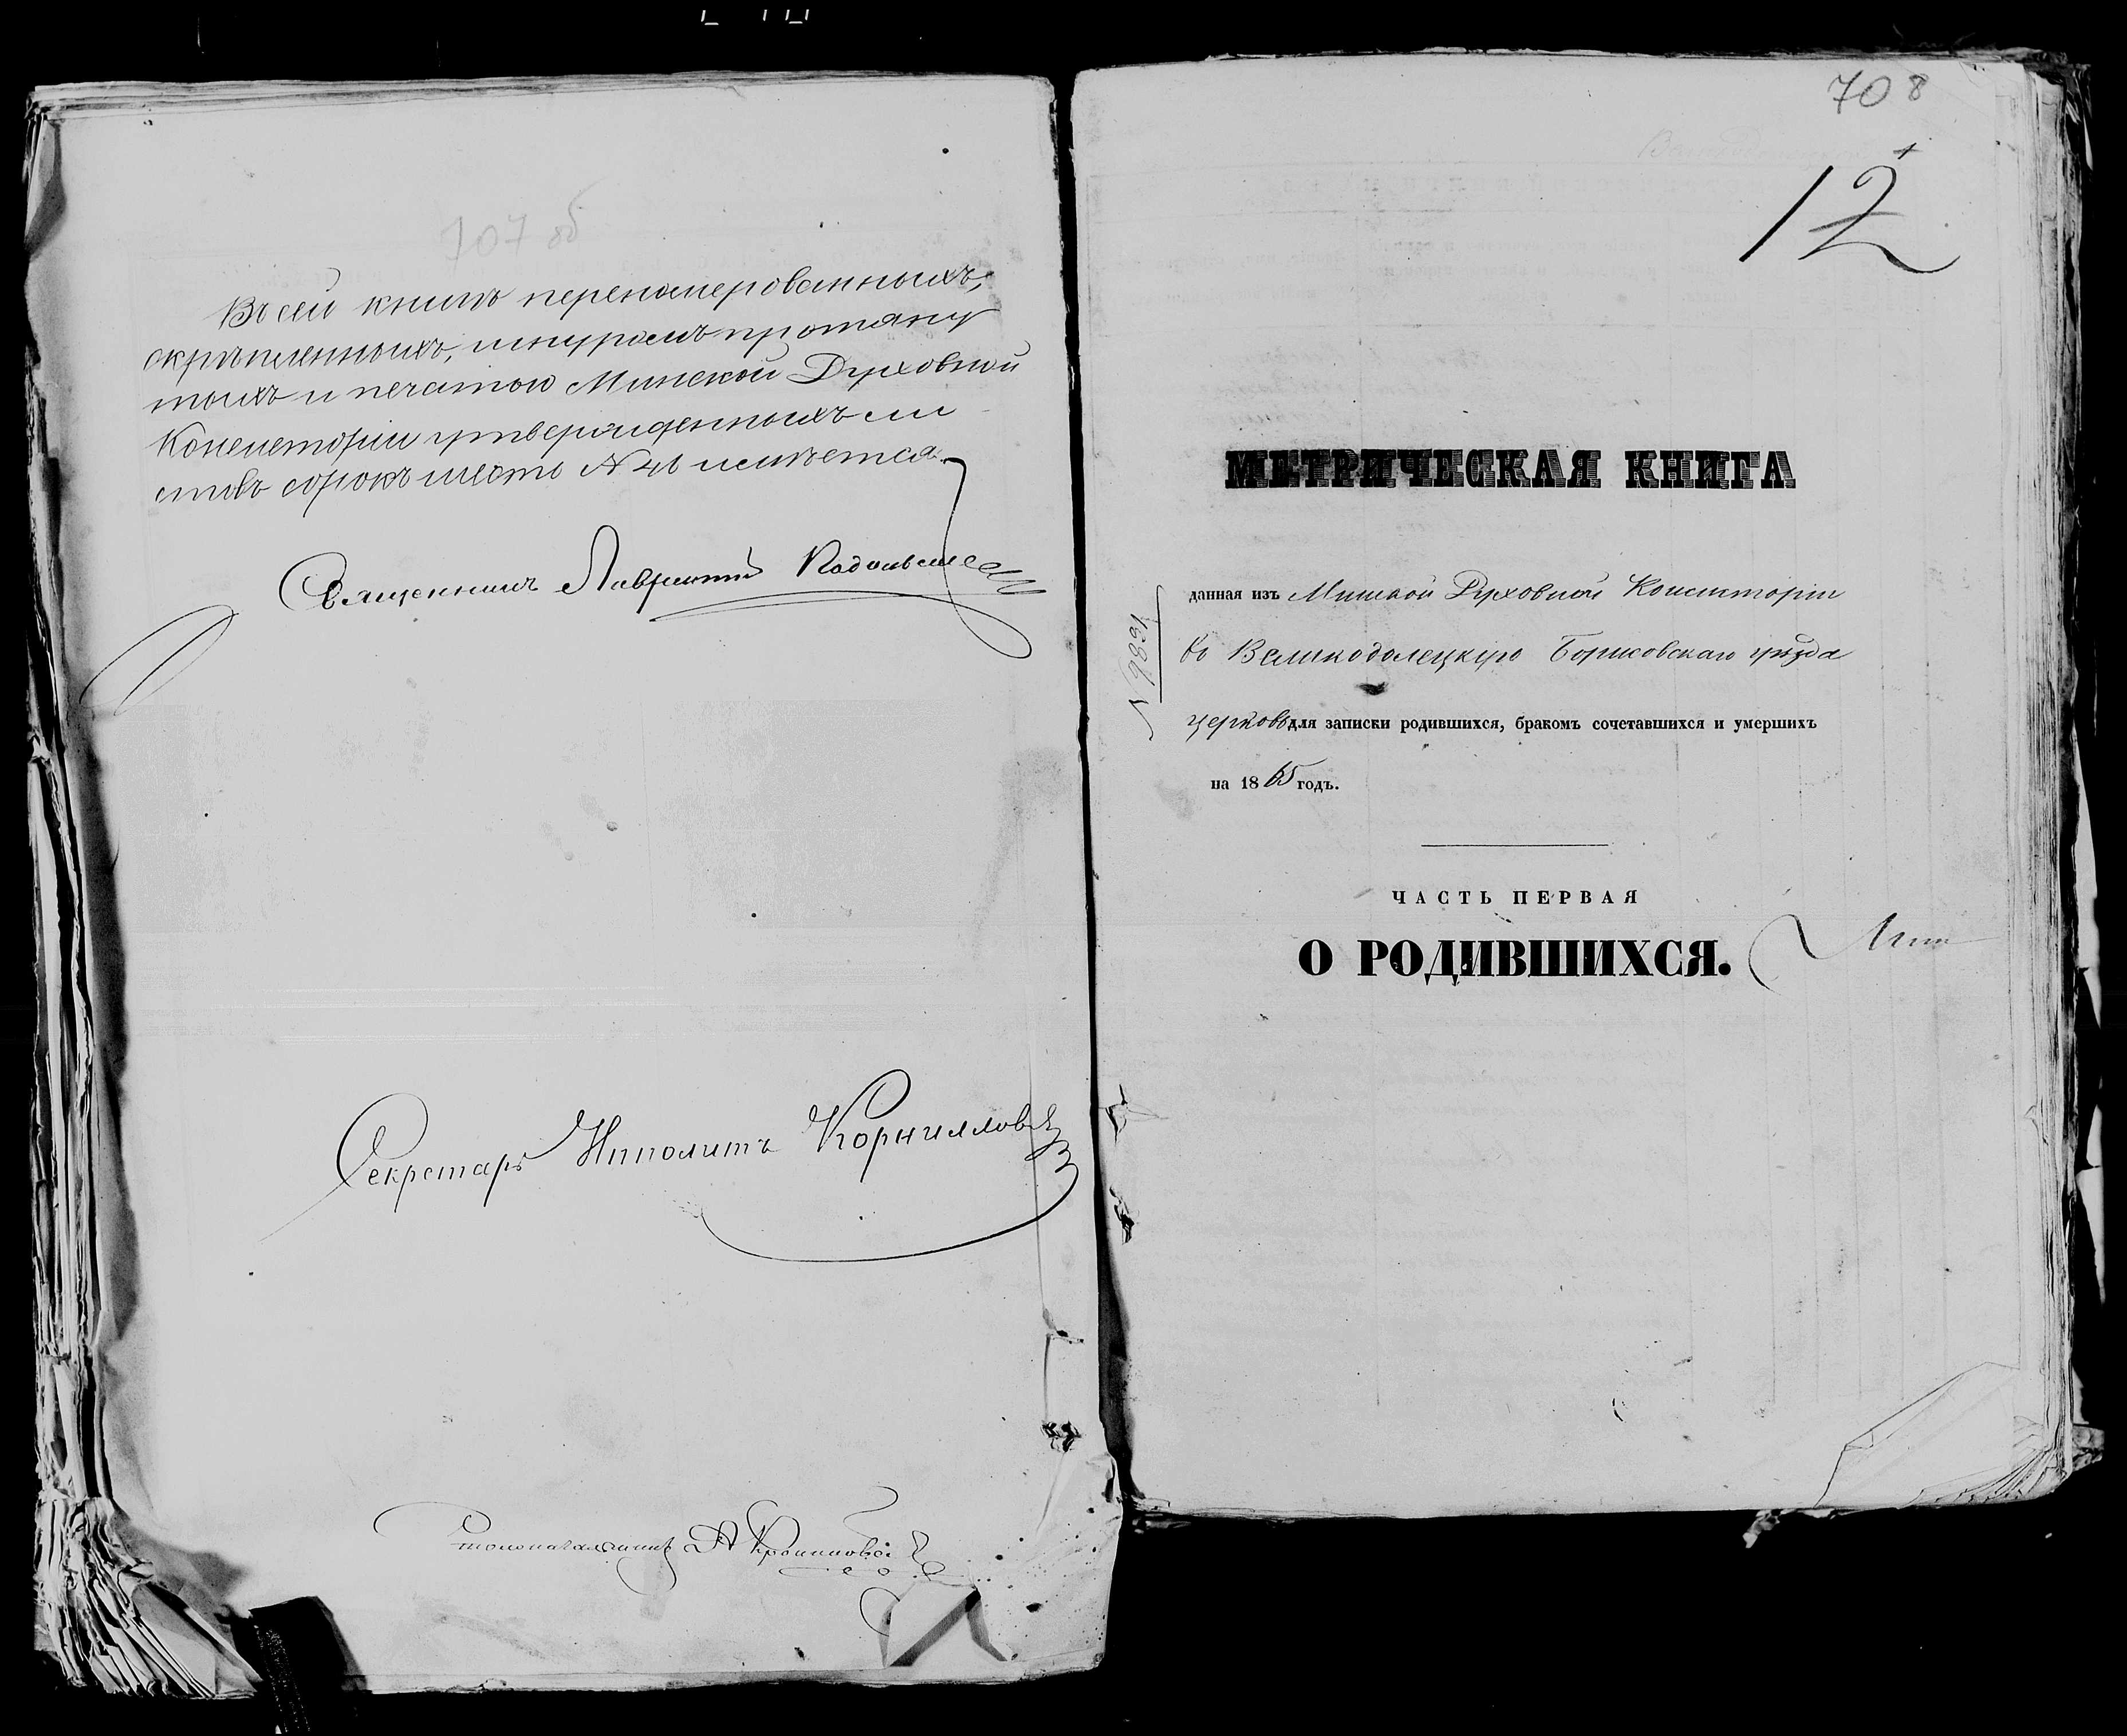 107 об
Въ сей книгѣ перенумерованныхъ,
скрѣпленныхъ, шнуромъ протяну
тыхъ и печатью Минской Духовной
Консисторіи утвержденныхъ ли
стовъ сорокъ шесть N 46 имѣется.
Священникъ Лаврентій
Секретарь Иполитъ Корниловъ
Столоначальникъ
708
12
МЕТРИЧЕСКАЯ КНИГА
данная изъ Минской Духовной Консисторіи
въ Великодолецкую Борисовскаго уѣзда
церковь для записки родившихся, бракомъ сочетавшихся и умершихъ
на 1865 годъ.
N 9831
ЧАСТЬ ПЕРВАЯ
О РОДИВШИХСЯ.